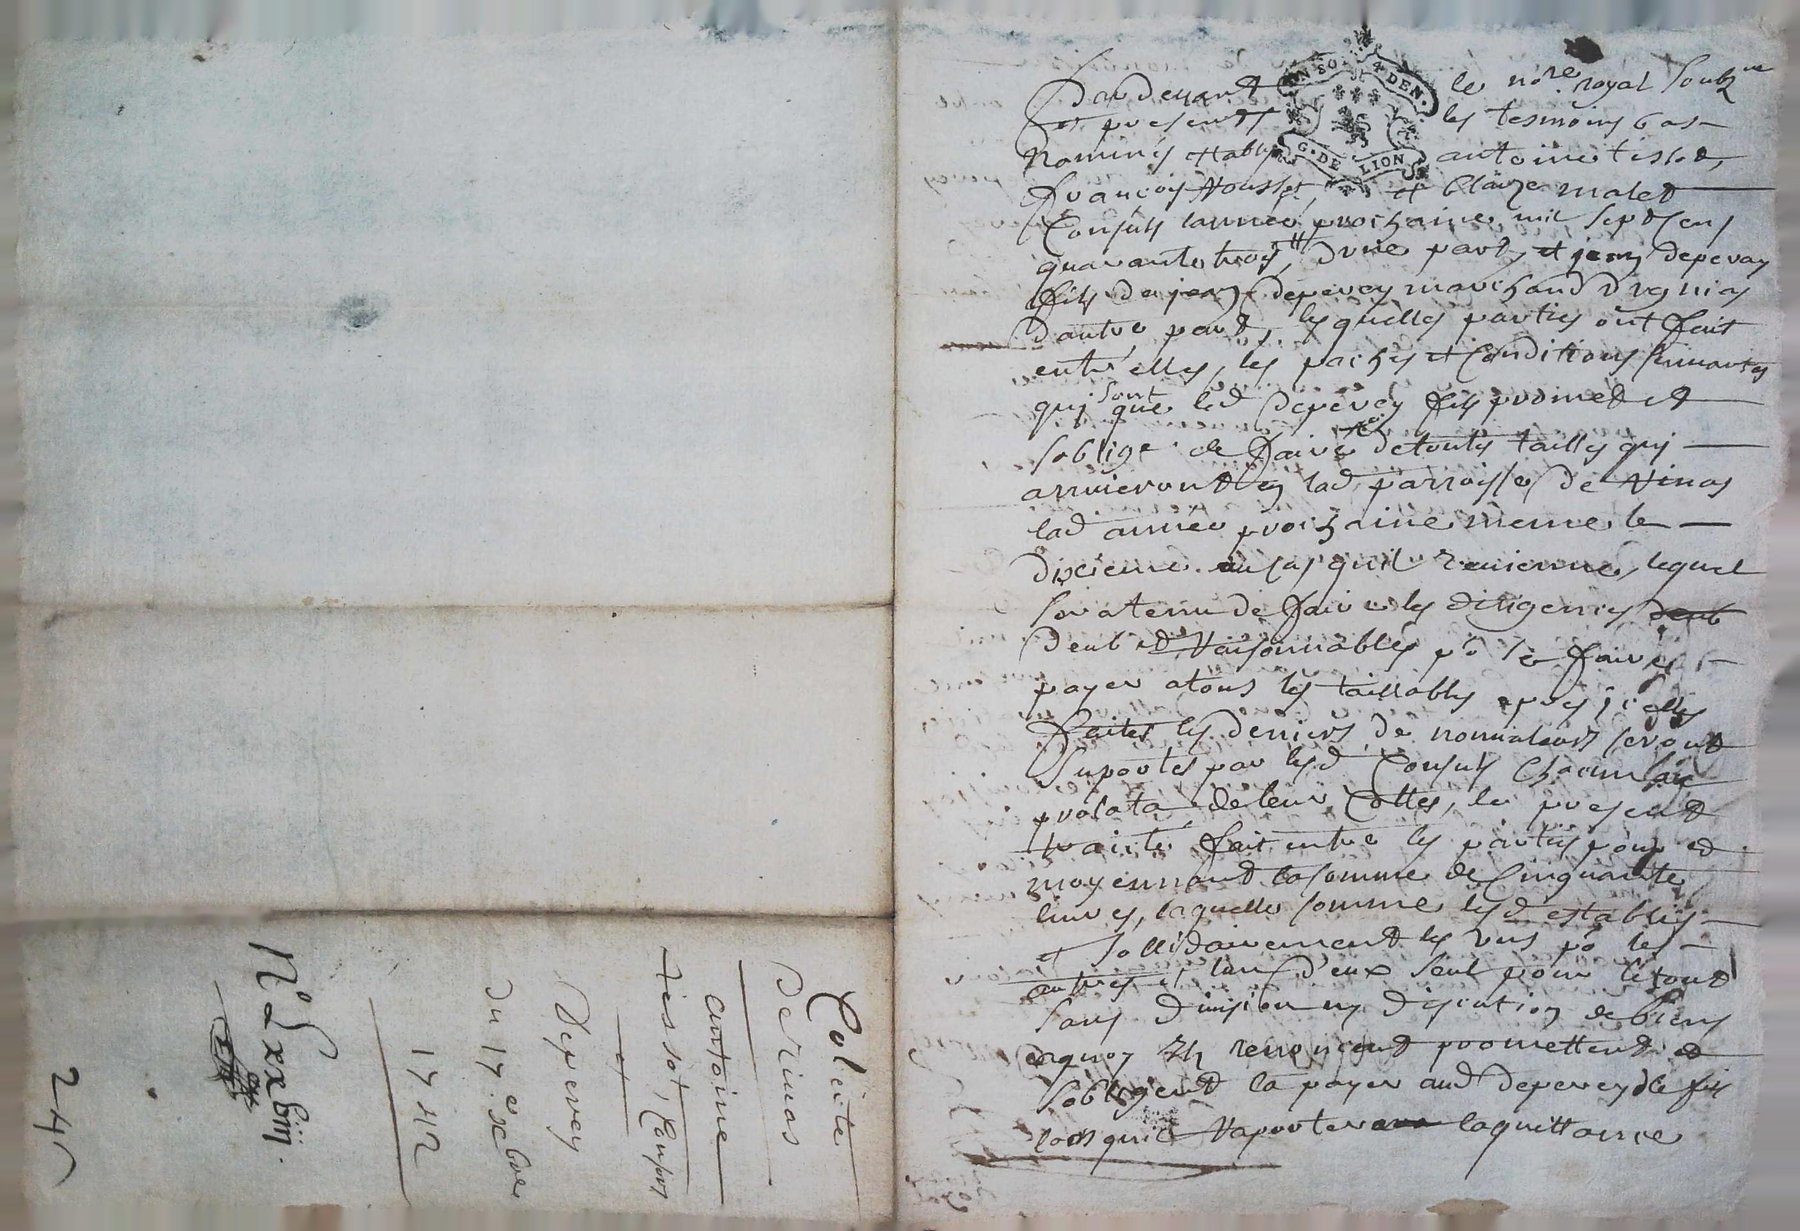 Pardevant le no.re royal soubz.ne
et presents les tesmoins bas
nommés establis antoine tissot,
françois housset, et blaize malet
Consuls lannée prochaine mil sept Cens
quarante trois, dune part, et jean deperey
fils de jean deperey marchand
dautre part, lesquelles parties ont fait
entre elles, les paches et Conditions suivantes
qui sont que led deperey fils promet et
soblige de faire detoutes tailles qui
arriveront en lad parroisse de
lad année prochaine meme le
dixieme au cas quil revienne, lequel
sera tenu de faire les diligences
deub et raisonnables po se faire
payer atous les taillables
faites les deniers de seront
suportes par lesd Consuls Chacun au
prolata de leur Cottes, le present
traicté fait entre les parties pour et
moyennant la somme de Cinquante
livres, laquelle somme lesd establis
et sollidairement les uns po les
autres et lun d'eux seul pour le tout
sans division ny discution de biens
aquoy ils renoncent promettent et
sobligent la payer aud deperey fils
lors quil raportera la quittance
Colecte
antoine
tissot, Consul
et
Deperey
Du 17.e xbre
1742
N°
245
G. DE LION